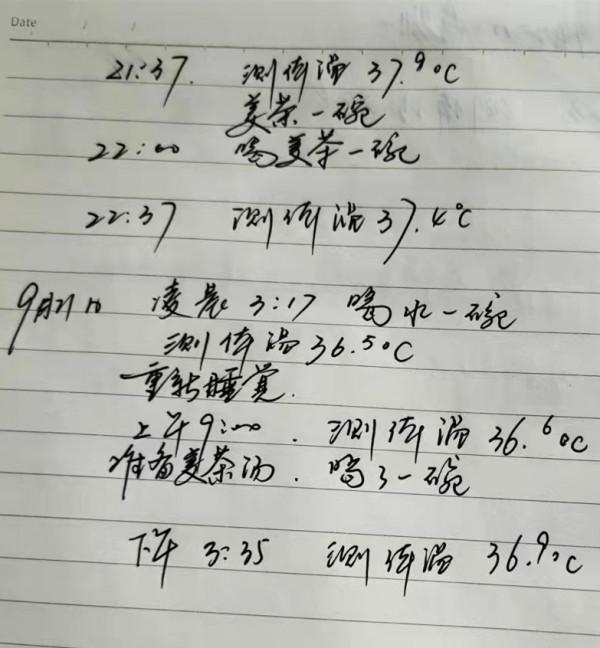 Date
21:37. 测体温 37.9°C
姜茶一碗
22:00 喝姜茶一碗
22:37 测体温 37.4°C
9月21日 凌晨 3:17 喝水一碗
测体温 36.5°C
重新睡觉.
上午9:00. 测体温 36.6°C
准备姜茶汤. 喝了一碗
下午 3:35 测体温 36.9°C